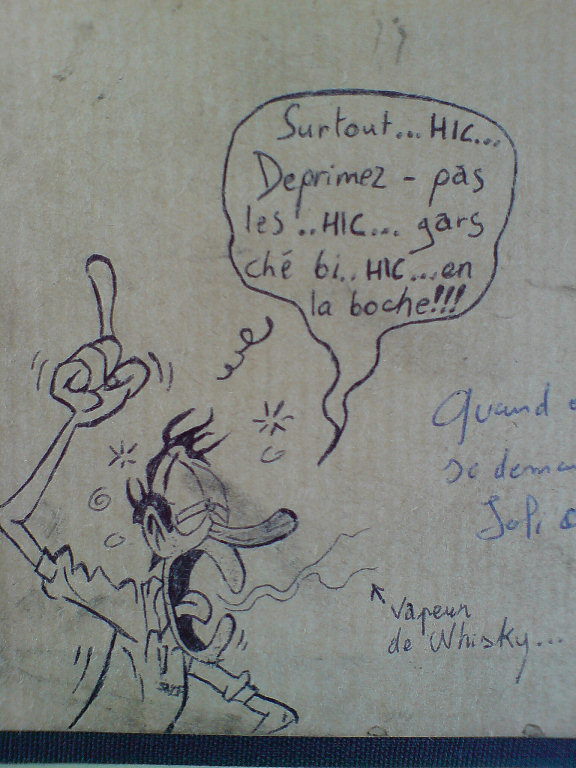 Surtout... HIC...
Deprimez - pas
les !.. HIC... gars
ché bi.. HIC...en
la boche!!!
Quand
se deman
Joli
vapeur
de Whisky...